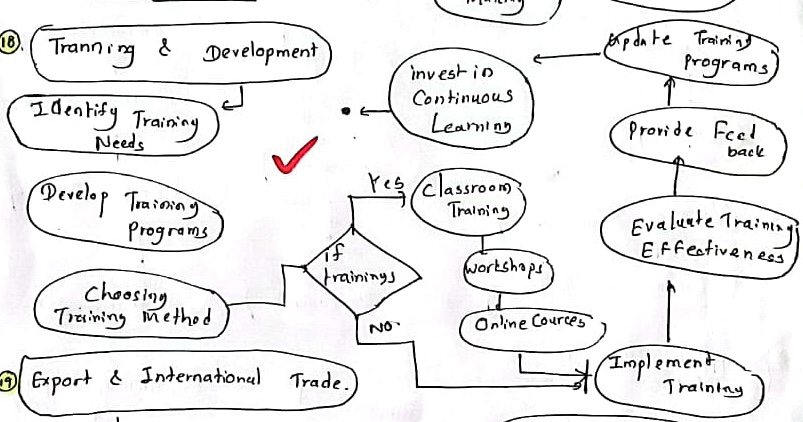 18.
Tranning & Development
Identify Training
Needs
Develop Training
Programs
Choosing
Training Method
if
trainings
Yes
NO.
Classroom
Training
Workshops
Online Cources
Implement
Training
Evaluate Training
Effectiveness
Provide Feed
back
Update Training
Programs
invest in
Continuous
Learning
19
Export & International Trade.